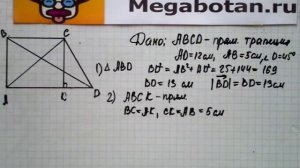 Megabotan.ru
Дано: ABCD - прям. трапеция
AD=12см, AB=5см, ∠D=45°
B C
1) △ ABD
BD²=AB²+AD²=25+144=169
BD=13 см |BD|=BD=13см
2) ABCK - прям.
BC=AK, CK=AB=5см
A K D